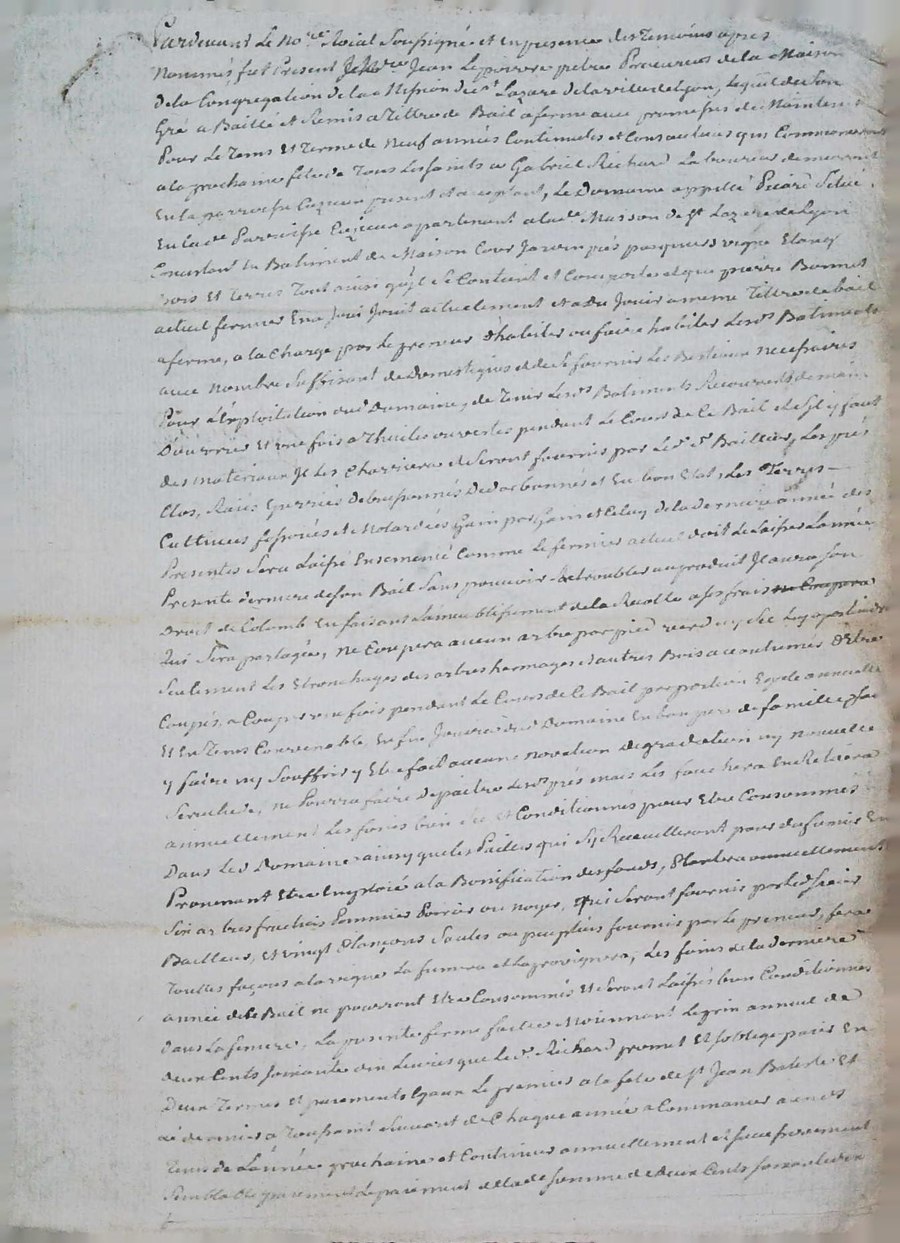 Pardevant Le No.re Roial Soussigné et en presence des Temoins apres
Nommés, fut Present Jean prêtre Procureur de la Maison
de la Congregation de la Mission de St. Lazare de la ville de Lyon, Lequel de Son
Gré a Baillé et Remis a Tittre de Bail a ferme avec promesses de Maintenir
Pour Le Tems Et Terme de Neuf années Continuelles et Consecutives qui Commenceront
a la prochaine fete de Tous Les Saints a Gabriel Richard Laboureur demeurant
En la parroisse present et acceptant, Le Domaine appellé Situé
En la de Parroisse apartenant a la de Maison de St Lazare de Lyon
Consistant En Batiment de Maison Cour Jardin prés paquiers vigne Etang
bois Et Terres Tout ainsi qu'il se Contient et Comporte et que pierre Bonnet
actuel fermier En a Joui Jouit actuellement et a du Jouir a meme Tittre de bail
a ferme, a la Charge par le preneur d'habiter ou faire habiter Lesds Batiments
avec Nombre Suffisant de Domestiques et de se fournir Les Bestiaux necessaires
Pour L'exploitation dud Domaine, de Tenir Lesds Batiments Recouverts de main
D'ouvrier Et une fois a Thuiles ouvertes pendant Le Cours de Ce Bail et S'il y faut
des materiaux Il Les Charriera et Seront fournis par Led. Sr. Bailleur, Les prés
Clos, Raies En bon Etat, Les Terres
Cultivées et Gain par Gain et Celuy de la Derniere année des
Presentes Sera Laissé Ensemencé Comme Le fermier actuel doit Le Laisser L'année
Presente derniere de Son Bail Sans pouvoir Le troubler au produit Il aura Son
Droit de Colomb En faisant de la Recolte a Ses frais
Qui Sera partagée, Ne Coupera aucun arbre par pied verd ny Sec
Seulement Les Etronchages des arbres hermages et autres Bois accoutumés D'Etre
Coupés, a Couper une fois pendant Le Cours de Ce Bail par portion Egale annuelle
Et En Tems Convenable, En fin Jouira dud Domaine En bon pere de famille Sans
y faire ny Souffrir y Etre fait aucune novation degradation ny nouvelle
Servitude, ne Pourra faire Depaitre Lesds prés mais Les fauchera En Retirera
annuellement Les foins bien Et Conditionnés pour Etre Consommés
Dans Led Domaine ainsy que Les Pailles qui S'y Recueilleront pour du fumier En
Provenant Etre Emploié a la Bonification des fonds, Plantera annuellement
Six arbres fruitiers Pommiers Poiriers ou Noyers, Qui Seront fournis par Led Sieur
Bailleur, Et vingt Plançons Saules ou peupliers fournis par Le preneur, fera
Touttes façons a la vigne La fumera et La provignera, Les foins de la derniere
année de Ce Bail ne pourront Etre Consommés Et Seront Laissés bien Conditionnés
Dans La feniere, La presente ferme faitte Moiennant Le prix annuel de
deux Cents Soixante dix Livres que Led. Richard promet Et S'oblige paier En
Deux Termes Et paiements Egaux Le premier a la fete de St Jean Batiste Et
Le dernier a Toussaint Suivant de Chaque année a Commancer aux
Tems de L'année prochaine et Continuer annuellement et Successivement
Semblable paiement Le paiement de lade Somme de deux Cents Soixante dix